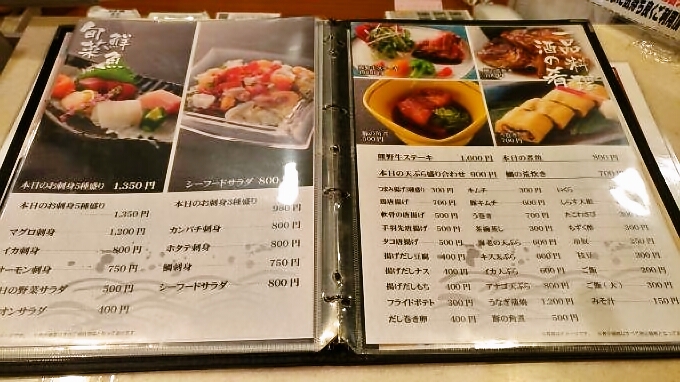 旬菜
鮮魚
本日のお刺身5種盛り 1,350円
シーフードサラダ 800円
本日のお刺身5種盛り
1,350円
本日のお刺身3種盛り
980円
マグロ刺身 1,200円
カンパチ刺身 800円
イカ刺身 800円
ホタテ刺身 800円
サーモン刺身 750円
鯛刺身 750円
日の野菜サラダ 500円
シーフードサラダ 800円
オンサラダ 400円
一品料理
酒の肴
豚の角煮
500円
熊野牛ステーキ 1,000円
本日の煮魚 800円
本日の天ぷら盛り合わせ 900円
鯛の荒炊き 700円
つまみ揚げ3種盛り 300円
キムチ 300円
いくら
鶏唐揚げ 700円
豚キムチ 600円
しらす大根
軟骨の唐揚げ 500円
う巻き 700円
たこわさび
手羽先唐揚げ 500円
茶碗蒸し 300円
もずく酢 300円
タコ唐揚げ 500円
海老の天ぷら
冷奴 250円
揚げだし豆腐 400円
キス天ぷら
枝豆
揚げだしナス 400円
イカ天ぷら 600円
ご飯 200円
揚げだしもち 400円
アナゴ天ぷら 800円
ご飯(大) 300円
フライドポテト 300円
うなぎ蒲焼 1,200円
みそ汁 150円
だし巻き卵 400円
豚の角煮 500円